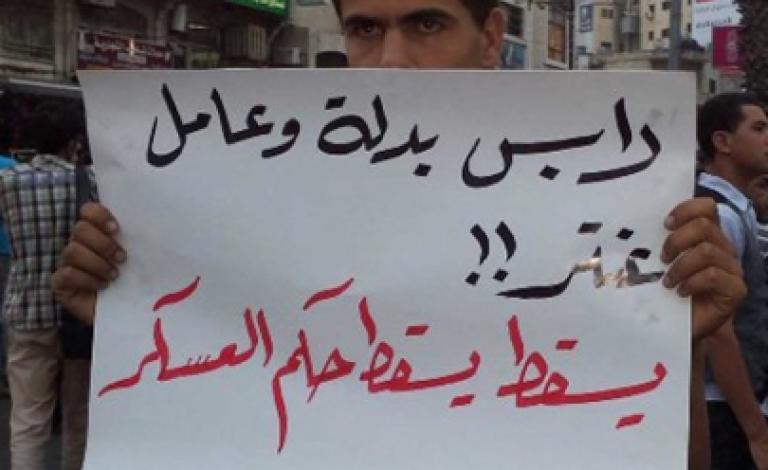 لابس بدلة وعامل
عنتر !!
يسقط يسقط حكم العسكر